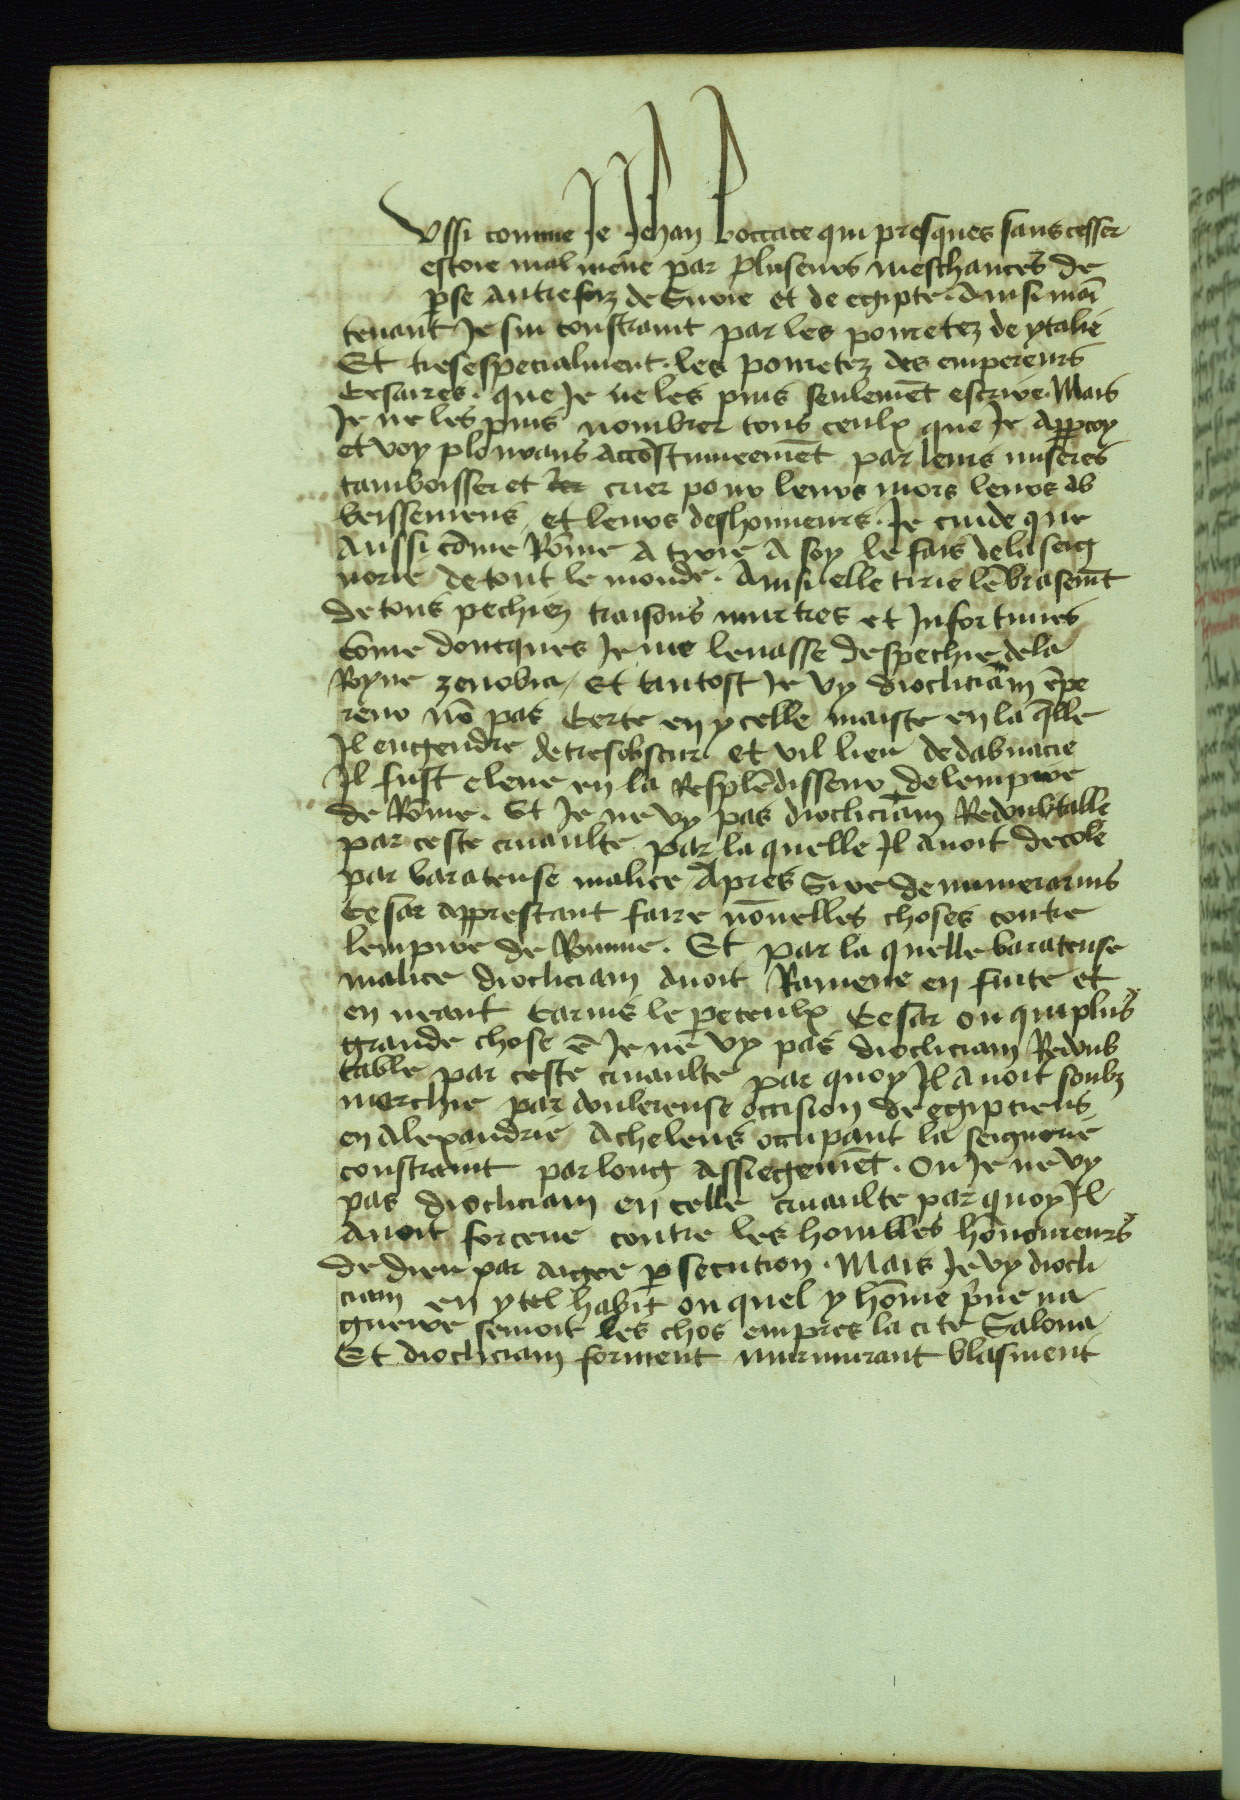 Ussi comme Je Jehan boccace qui presques sans cesser
estoie mal mene par pluseurs meschances de
pse autrefoiz de Surie et de egipte. Ainsi mai
tenant Je sui constraint par les pouretez de ytalie
Et tresespecialment. les pouretez des empereurs
Cesaires. que Je ne les puis seulemēt escrire. Mais
Je ne les puis nombrer tous ceulx que Je appcoy
et voy plourans accostumeemēt par leurs miseres
tamboisser et crier pour leurs mors leurs ab
beissemens et leurs deshonneurs. Je cuide que
Aussi cōme Rōme a tirie a soy le fais dela seig
norie de tout le monde. Ainsi elle tirie lēbrasemt
de tous pechiez traisons murtres et Infortunes
Cōme doncques Je me leuasse despechie dela
Royne zenobia / Et tantost Je vy diocliciam ēpe
reur nō pas Certe en ycelle maiste en la qlle
Il engendre de tresobscur et vil lieu de dalmacie
Il fust esleue en la Resplēdisseur de lempire
de Rōme. Et Je ne vy pas diocliciam Redoubtable
par ceste cruaulte par la quelle Il auoit decole
par barateuse malice Apres Sire de numerarius
Cesar apprestant faire nouuelles choses contre
lempire de Romme. Et par la quelle barateuse
malice diocliciam auoit Ramene en fuite et
en neant Carius le peceulx Cesar ou qui plus
grande chose ē Je ne vy pas diocliciam Redoub
table par ceste cruaulte par quoy Il auoit soubz
merchie par doulereuse occision de egipciens
en Alexandrie Acheleus occupant la seignorie
constraint par long assiegemēt. Ou Je ne vy
pas diocliciam en celle cruaulte par quoy Il
auoit forcene contre les hombles honoureurs
de dieu par aigre psecution. Mais Je vy diocli
ciam en ytel habit ou quel y hōme pue na
guerre semoit les chos empres la cite Salona
Et diocliciam forment murmurant blasment